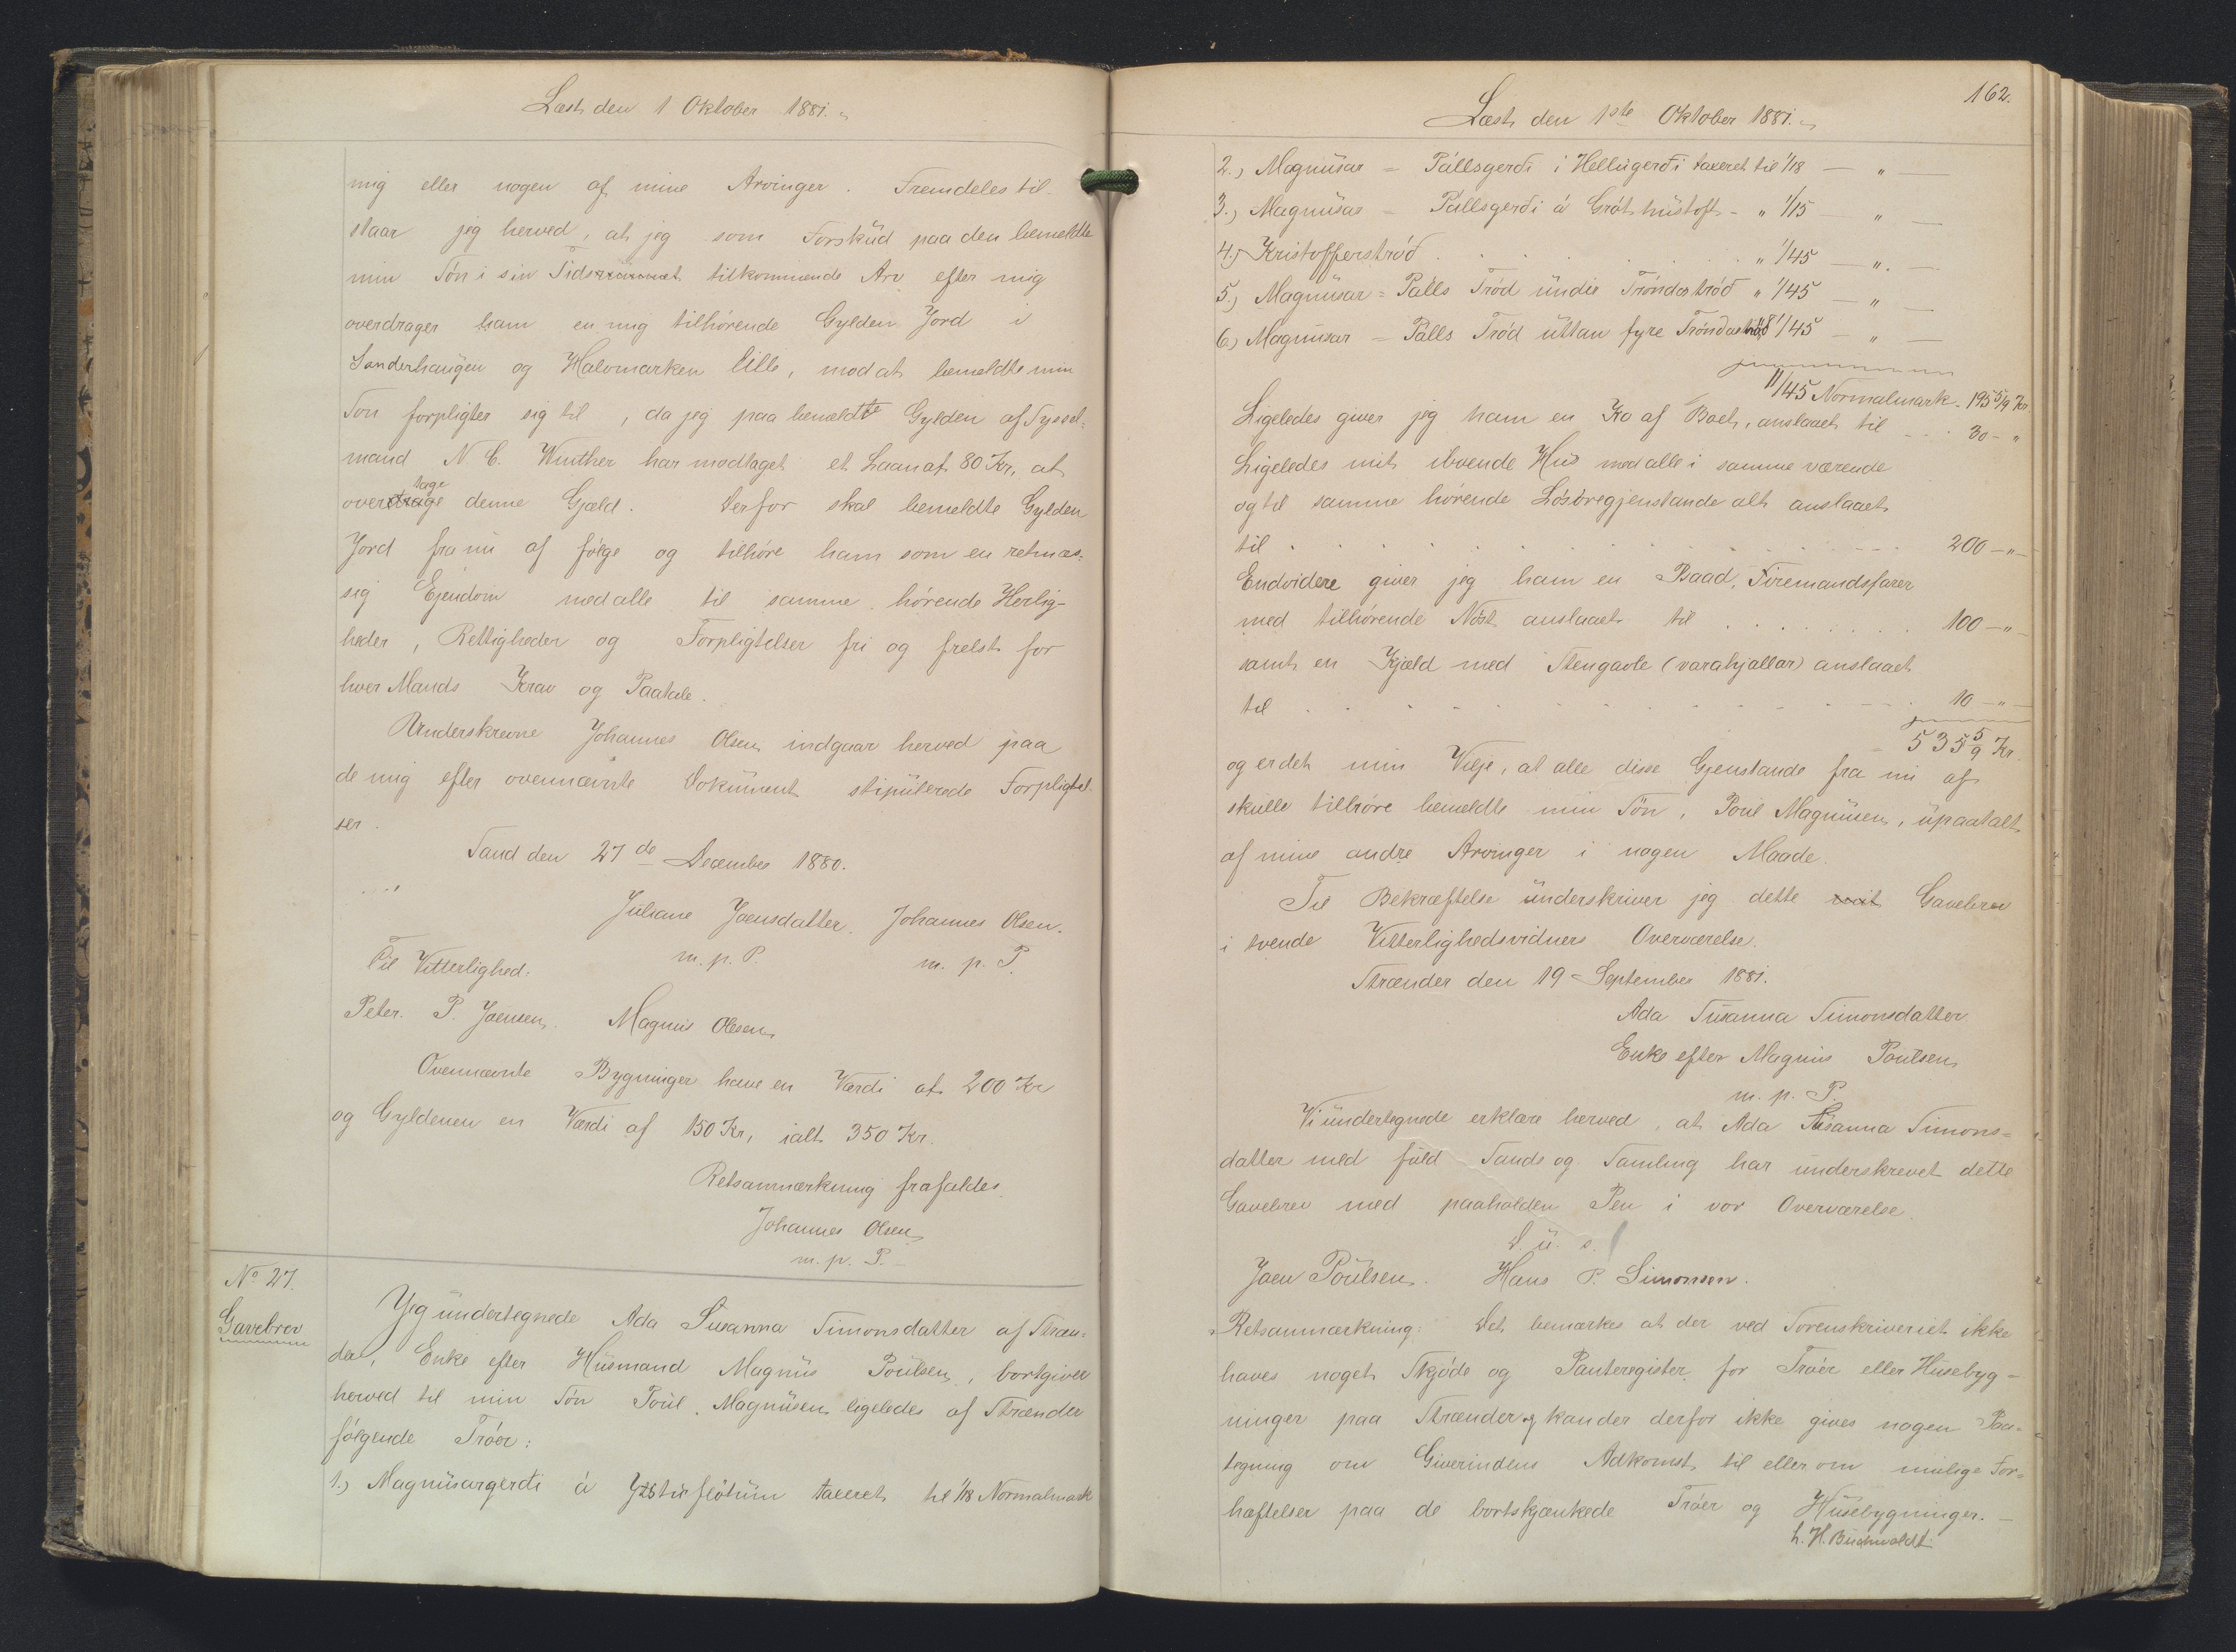 Læst den 1 Oktober 1881.
mig eller nogen af mine Arvinger. Fremdeles til-
staar jeg herved, at jeg som Forskud paa den bemeldte
min Søn i sin Tid tilkommende Arv efter mig
overdrager ham en mig tilhørende Gylden Jord i
Sanderhaugen og Halvmarken lille, mod at bemeldte min
Søn forpligter sig til, da jeg paa bemeldte Gylden af Syssel=
mand N. C. Winther har modtaget et Laan af 80 Kr, at
overtage denne Gjæld. Derfor skal bemeldte Gylden
Jord fra nu af følge og tilhøre ham som en retmæs=
sig Ejendom med alle til samme hørende Herlig-
heder, Rettigheder og Forpligtelser fri og frelst for
hver Mands Krav og Paatale.
Underskrevne Johannes Olsen indgaar herved paa
de mig efter ovennævnte Dokument stipulerede Forpligtel-
ser.
Sand den 27de December 1880.
Juliane Joensdatter. Johannes Olsen.
m. p. P. m. p. P.
Til Vitterlighed:
Peter. P. Joensen. Magnus Olesen
Ovennævnte Bygninger have en Værdi af 200 Kr
og Gyldenen en Værdi af 150 Kr, ialt 350 Kr.
Retsanmærkning frafaldes
Johannes Olsen
m. p. P.
No 27.
Gavebrev
Jeg undertegnede Ada Susanna Simonsdatter af Stræn=
der, Enke efter Husmand Magnus Poulsen, bortgiver
herved til min Søn Poul Magnusen ligeledes af Strænder
følgende Tróer:
1.) Magnusargerði á Ystuflötum taxeret til 1/18 Normalmark
162.
Læst den 1ste Oktober 1881.
2.) Magnusar = Pállsgerði i Hellugerði taxeret til 1/18 — " —
3.) Magnusar = Pállsgerði á Gróthústoft - " 1/15 — " —
4.) Kristofferstróð . . . . . . . " 1/45 — " . —
5.) Magnusar = Palls Tróð undir Tróndastróð " 1/45 — " —
6.) Magnusar = Palls Tróð uttan fyre Tróndastróð 1/45 — " —
11/45 Normalmark - 195 5/9 Kr.
Ligeledes giver jeg ham en Ko af Boel, anslaaet til . . . 30 - "
Ligeledes mit iboende Hus med alle i samme værende
og til samme hørende Løsøregjenstande alt anslaaet
til . . . . . . . . . . . 200 — " —
Endvidere giver jeg ham en Baad, Firemandsfarer
med tilhørende Nøst anslaaet til . . . . . . . 100 — " —
samt en Kjæld med Stengavle (varahjallar) anslaaet
til . . . . . . . . . . . 10 — " —
= 535 5/9 Kr.
og er det min Vilje, at alle disse Gjenstande fra nu af
skulle tilhøre bemeldte min Søn, Poul Magnusen, upaatalt
af mine andre Arvinger i nogen Maade.
Til Bekræftelse underskriver jeg dette mit Gavebrev
i tvende Vitterlighedsvidners Overværelse.
Strænder den 19 September 1881.
Ada Susanna Simonsdatter
Enke efter Magnus Poulsen
m. p. P.
Vi undertegnede erklære herved, at Ada Susanna Simons=
datter med fuld Sands og Samling har underskrevet dette
Gavebrev med paaholden Pen i vor Overværelse.
D. u. s.
Joen Poulsen. Hans P. Simonsen.
Retsanmærkning: Det bemærkes at der ved Sorenskriveriet ikke
haves noget Skjøde og Panteregister for Tróer eller Husebyg-
ninger paa Strænder og kan der derfor ikke gives nogen Paa-
tegning om Giverindens Adkomst til eller om mulige For=
hæftelser paa de bortskjænkede Tróer og Husebygninger. —
L. H. Buchwaldt